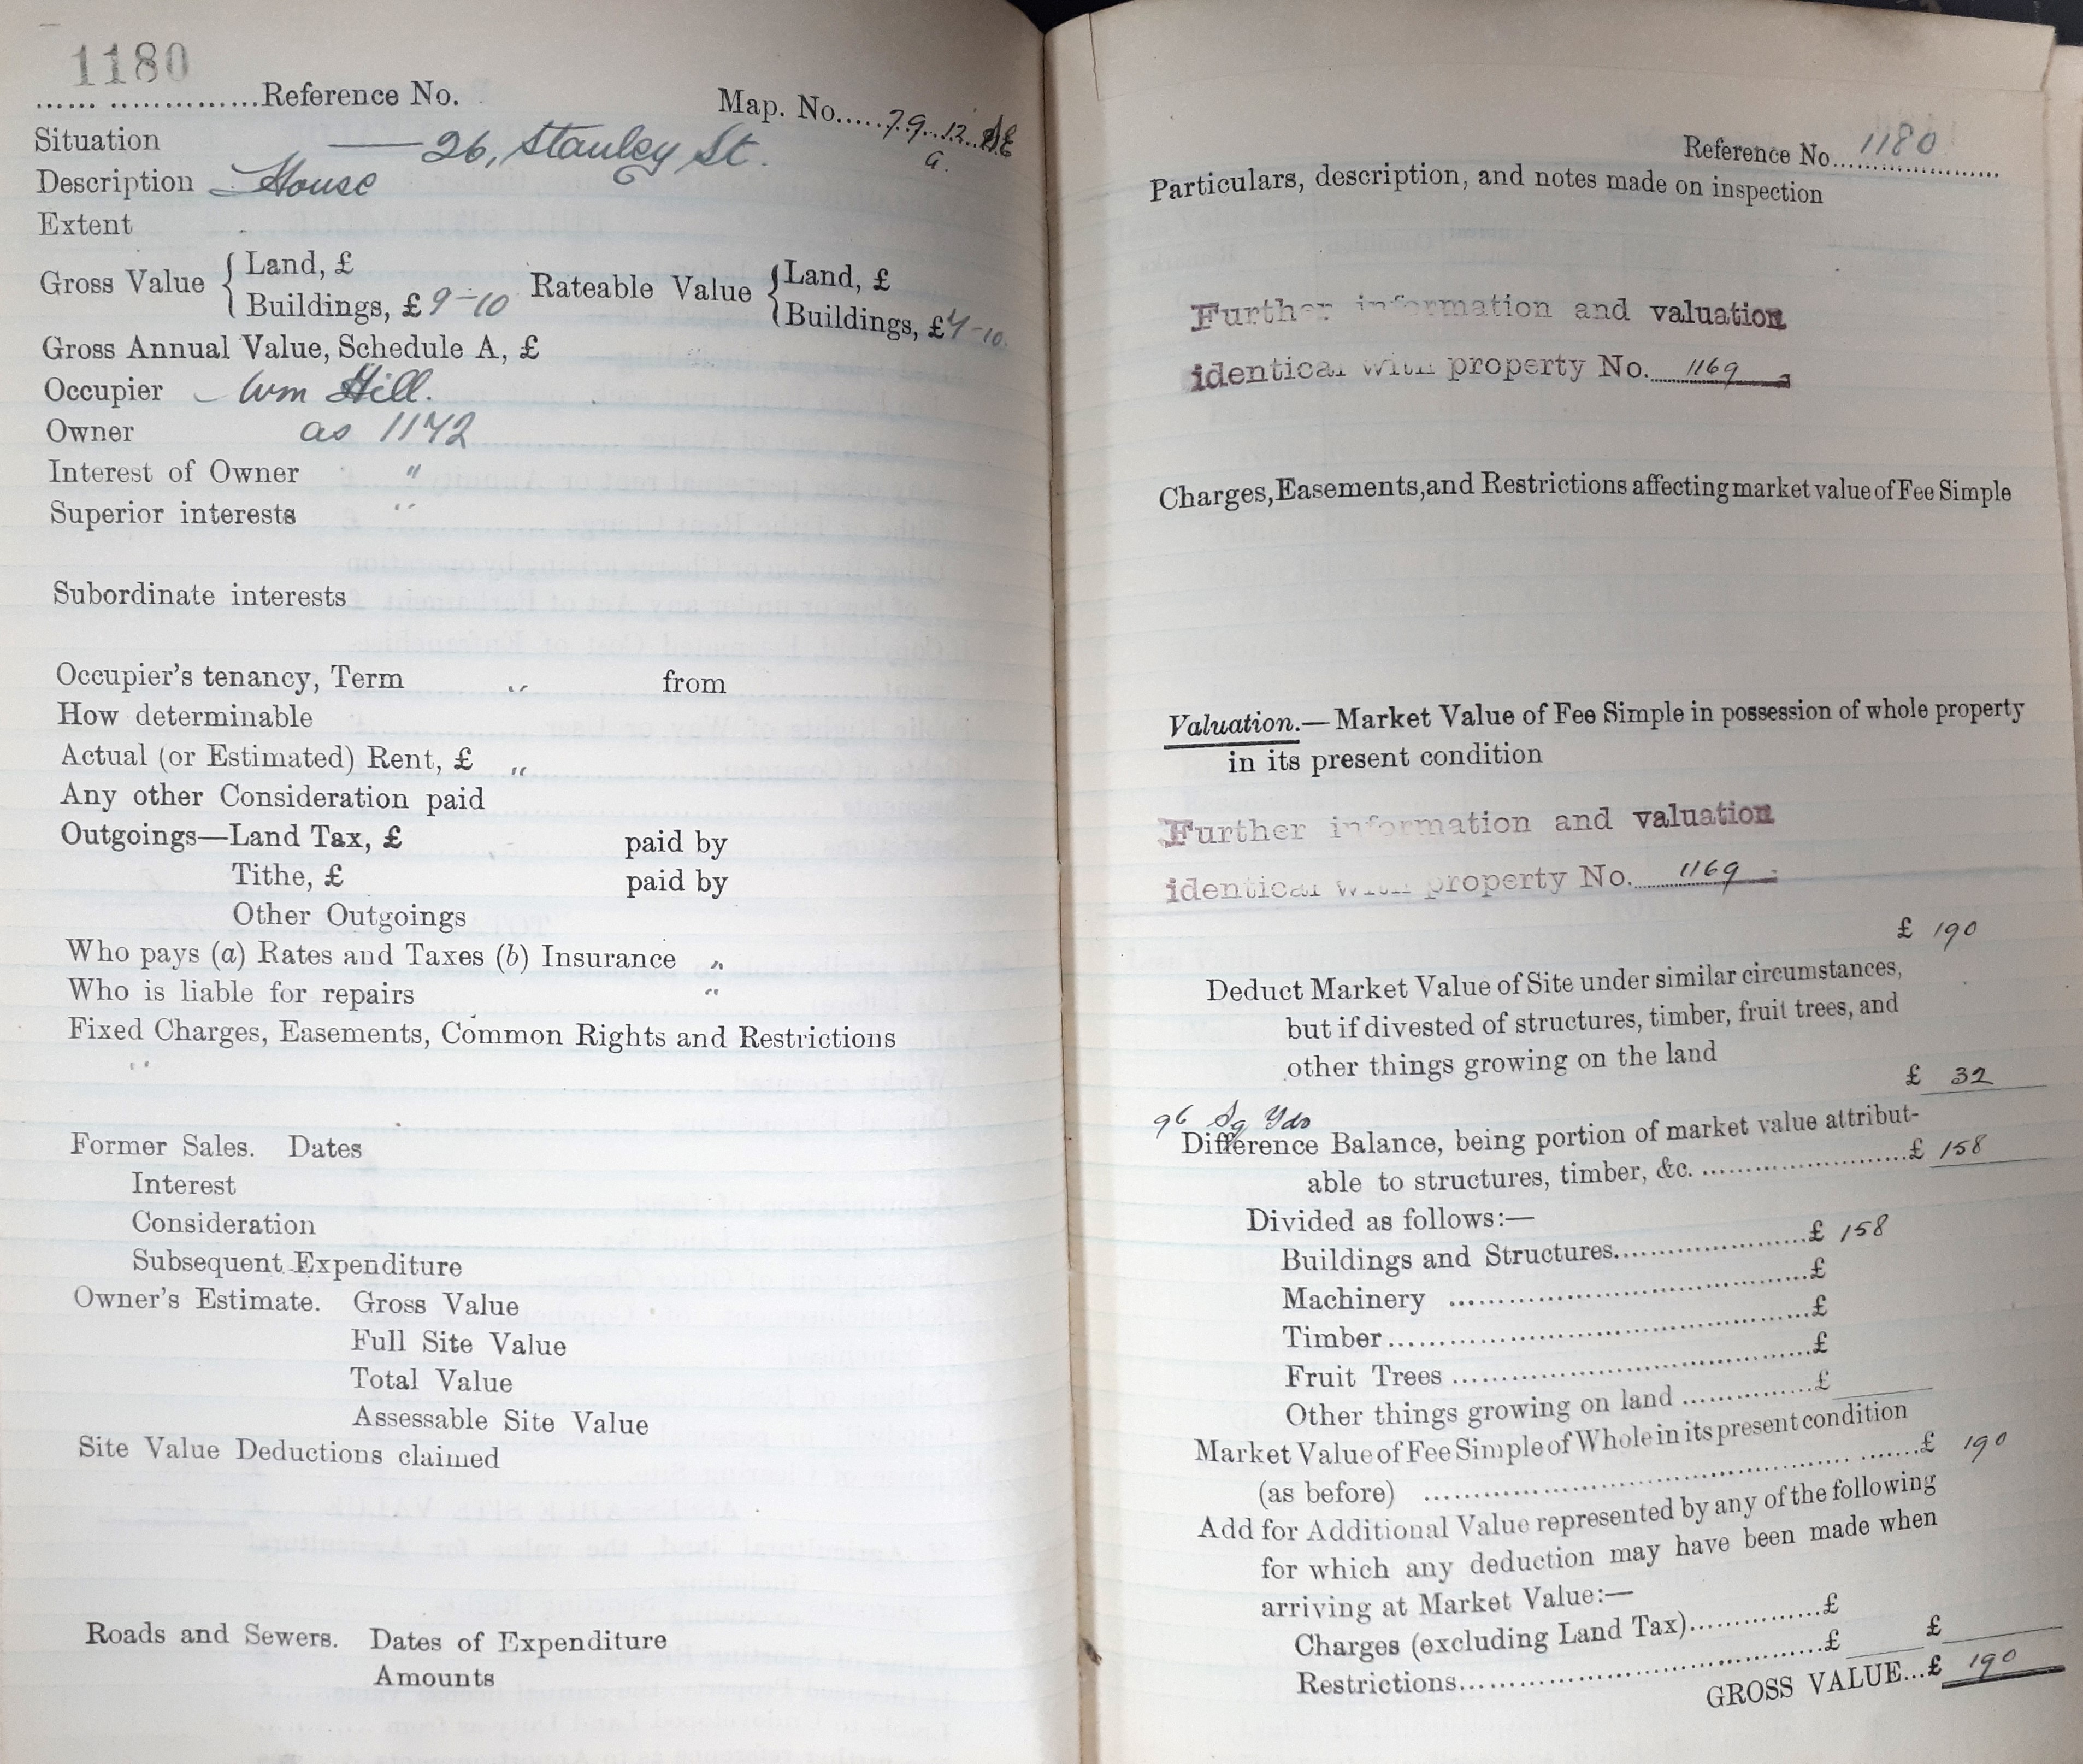 1180
Reference No.
Map. No. 79.12. SE
a.
Situation 26, Stanley St.
Description House
Extent
Gross Value { Land, £
Buildings, £ 9-10
Rateable Value { Land, £
Buildings, £
Gross Annual Value, Schedule A, £
Occupier Wm Hill.
Owner as 1142
Interest of Owner "
Superior interests "
Subordinate interests
Occupier's tenancy, Term " from
How determinable
Actual (or Estimated) Rent, £ "
Any other Consideration paid
Outgoings—Land Tax, £ paid by
Tithe, £ paid by
Other Outgoings
Who pays (a) Rates and Taxes (b) Insurance "
Who is liable for repairs "
Fixed Charges, Easements, Common Rights and Restrictions
"
Former Sales. Dates
Interest
Consideration
Subsequent Expenditure
Owner's Estimate. Gross Value
Full Site Value
Total Value
Assessable Site Value
Site Value Deductions claimed
Roads and Sewers. Dates of Expenditure
Amounts
Reference No. 1180
Particulars, description, and notes made on inspection
Further information and valuation
identical with property No. 1169
Charges, Easements, and Restrictions affecting market value of Fee Simple
Valuation.—Market Value of Fee Simple in possession of whole property
in its present condition
Further information and valuation
identical with property No. 1169
£ 190
Deduct Market Value of Site under similar circumstances,
but if divested of structures, timber, fruit trees, and
other things growing on the land
£ 32
96 Sq Yds
Difference Balance, being portion of market value attribut-
able to structures, timber, &c. £ 158
Divided as follows:—
Buildings and Structures £ 158
Machinery £
Timber £
Fruit Trees £
Other things growing on land £
Market Value of Fee Simple of Whole in its present condition
(as before) £ 190
Add for Additional Value represented by any of the following
for which any deduction may have been made when
arriving at Market Value:—
Charges (excluding Land Tax) £
Restrictions £ £
GROSS VALUE...£ 190